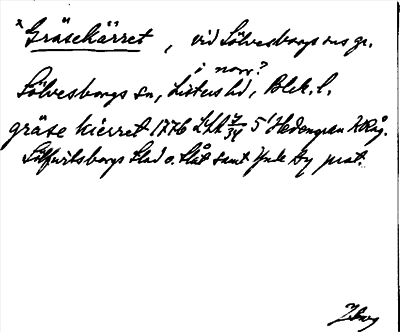 * Gräsekärret, vid Sölvesborgs rus gr.
i norr?
Sölvesborgs sn, Listers hd, Blek. l.
gräse kierret 1776 LSA 5' Hedengran
Sölfwitsborgs Stad o. Slåt samt Ynde by prot.